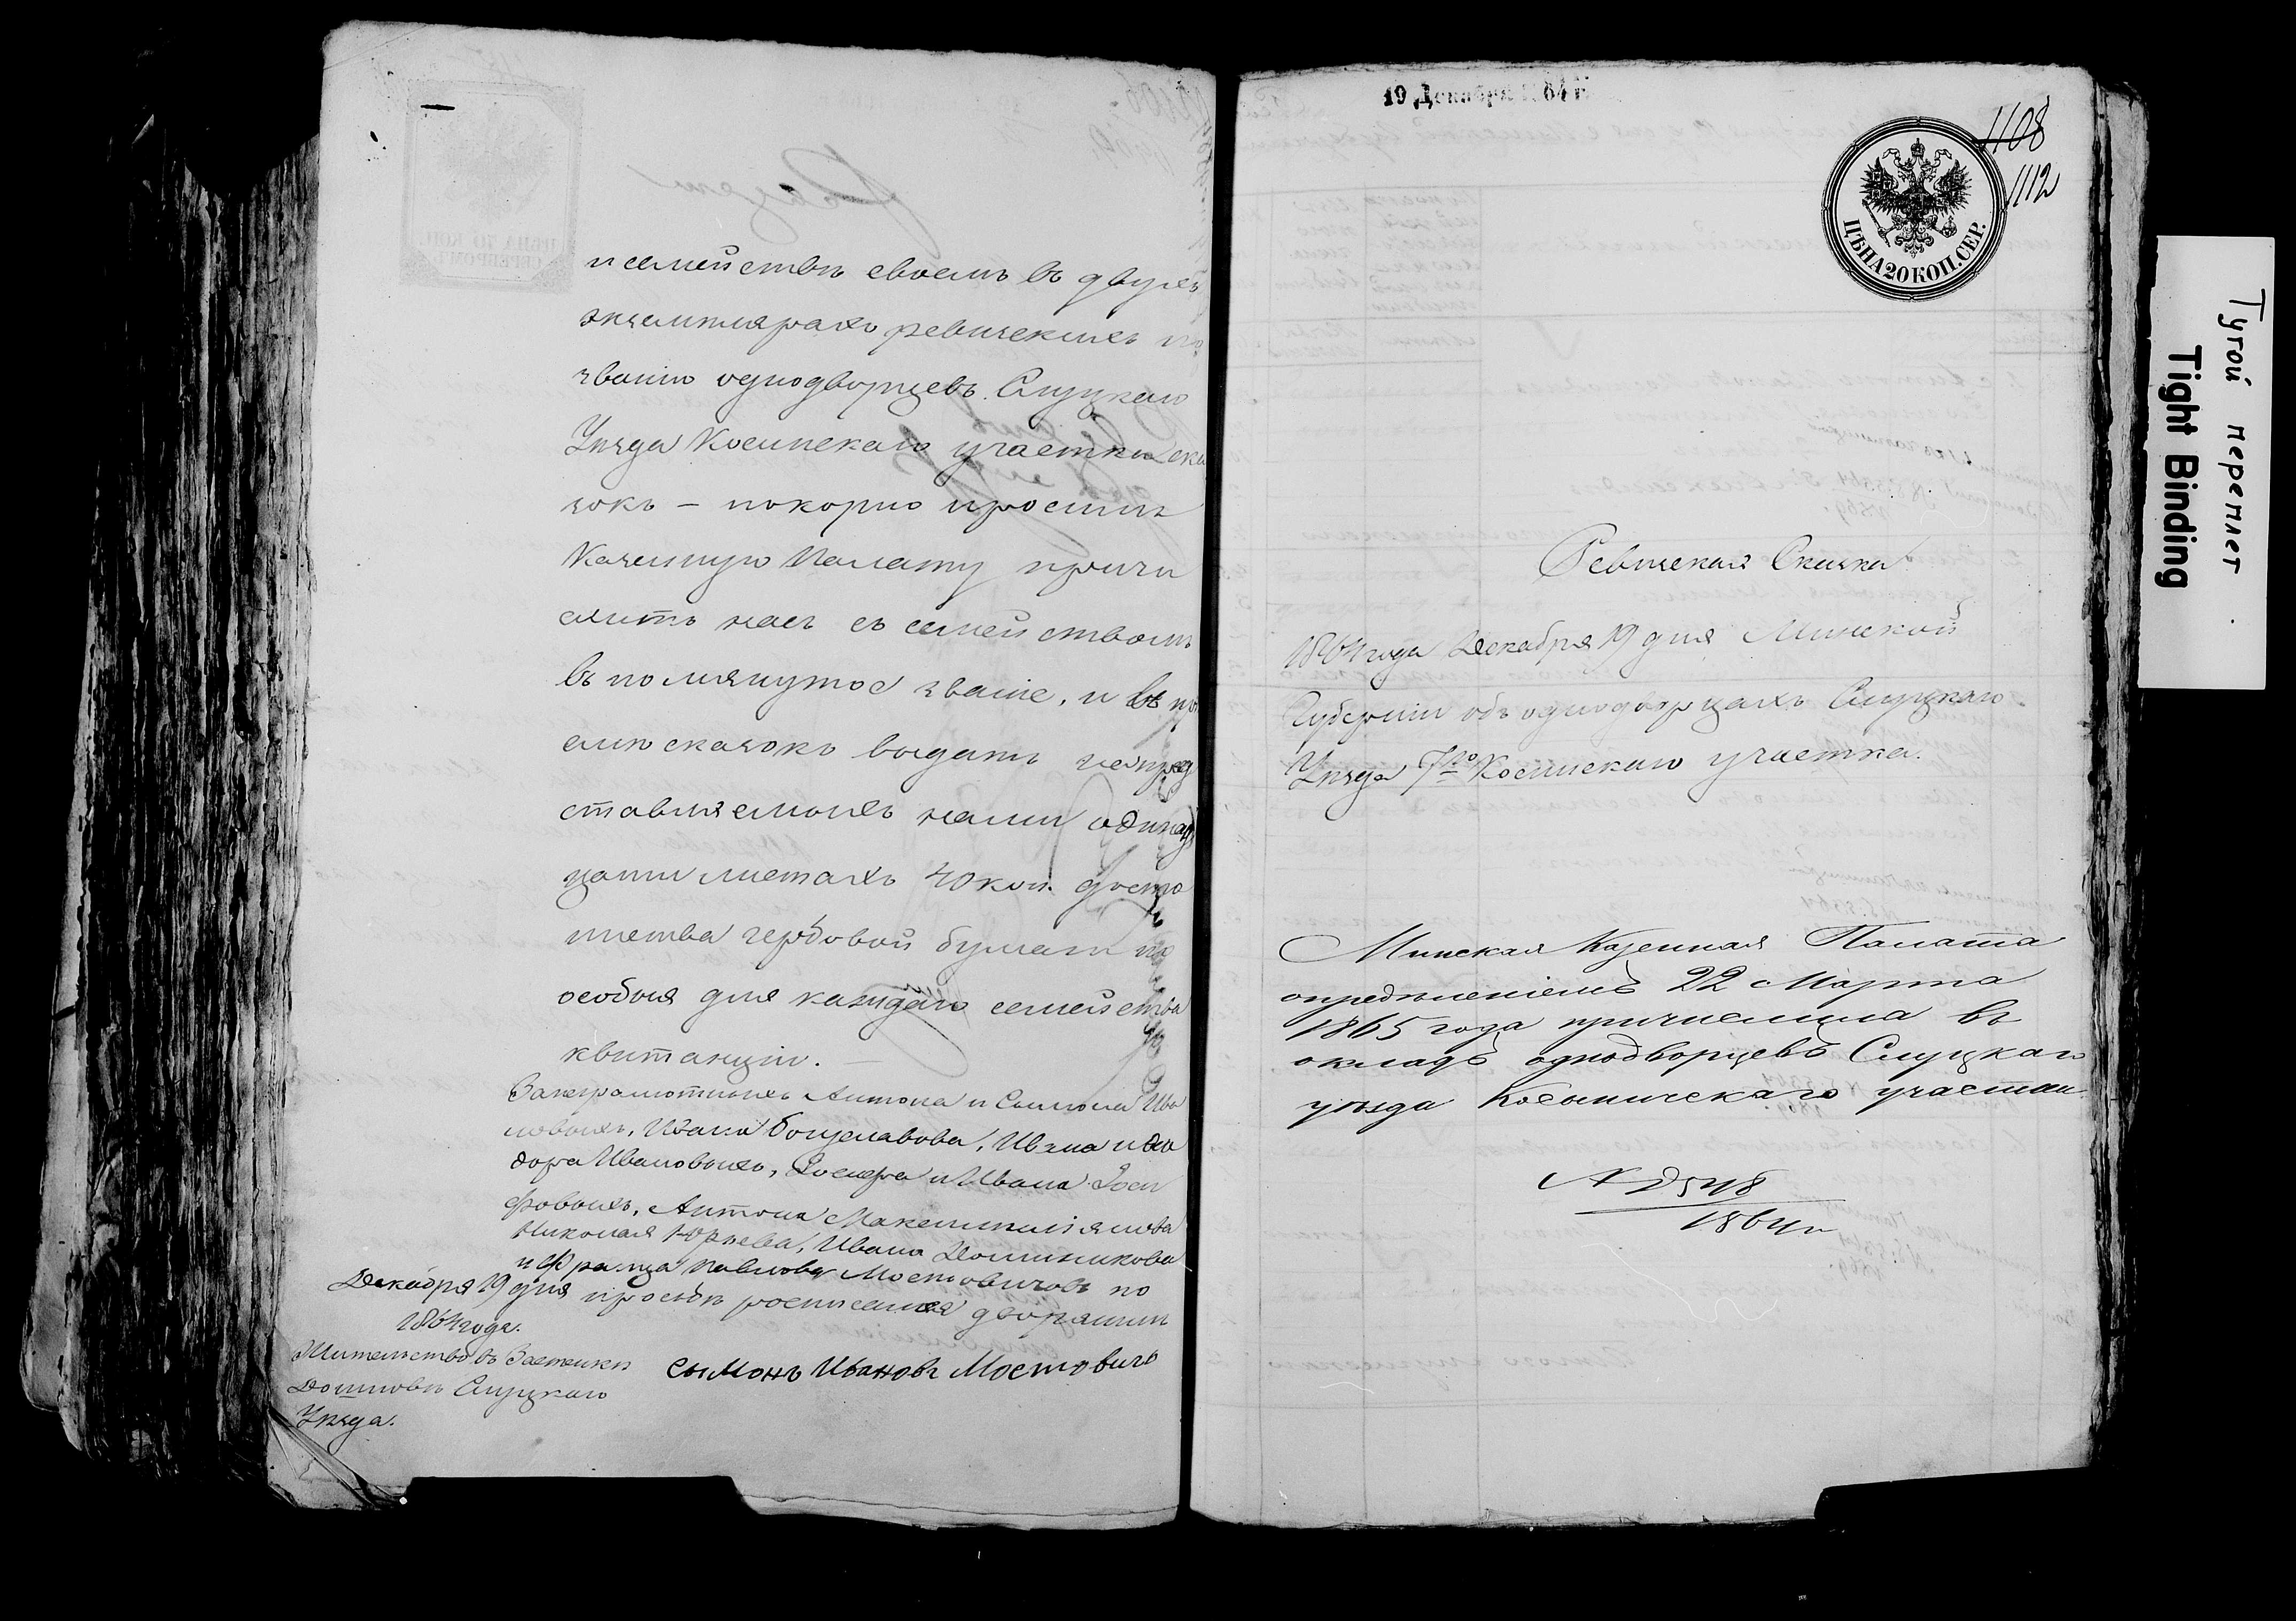 и семействѣ своемъ въ двухъ
экземплярахъ ревизскихъ по
званію однодворцевъ Слуцкаго
Уѣзда Косинскаго участка ска
зокъ — покорно просимъ
Казенную Палату причи
слить насъ съ семействомъ
въ помянутое званіе, и въ прі
емѣ сказокъ выдать на пред
ставляемыхъ нами одинад
цати листахъ 70 коп. досто
инства гербовой бумаги
особыя для каждаго семейства
квитанціи.
За неграмотныхъ Антона и Сымона Ива
новыхъ, Ивана Богуславова, Ивана и
дора Ивановыхъ, Іосифа и Ивана Іоси
фовыхъ, Антона Максимиліянова
Николая Юрьева, Ивана Доминикова
и Франца Павлова Мостовичовъ по
просьбѣ росписался дворянин
Сымонъ Ивановъ Мостовичъ
Декабря 19 дня
1864 года.
Жительство въ Застенкѣ
Слуцкаго
Уѣзда.
19 Декабря 1864 г.
1108
1112
ЦѢНА 20 КОП. СЕР.
Ревизская Сказка
1864 года Декабря 19 дня Минской
Губерніи объ однодворцахъ Слуцкаго
Уѣзда 7го Косинскаго участка.
Минская Казенная Палата
опредѣленіемъ 22 Марта
1865 года причислила въ
окладъ однодворцевъ Слуцкаго
уѣзда участка
1864 г.
Тугой переплет.
Tight Binding